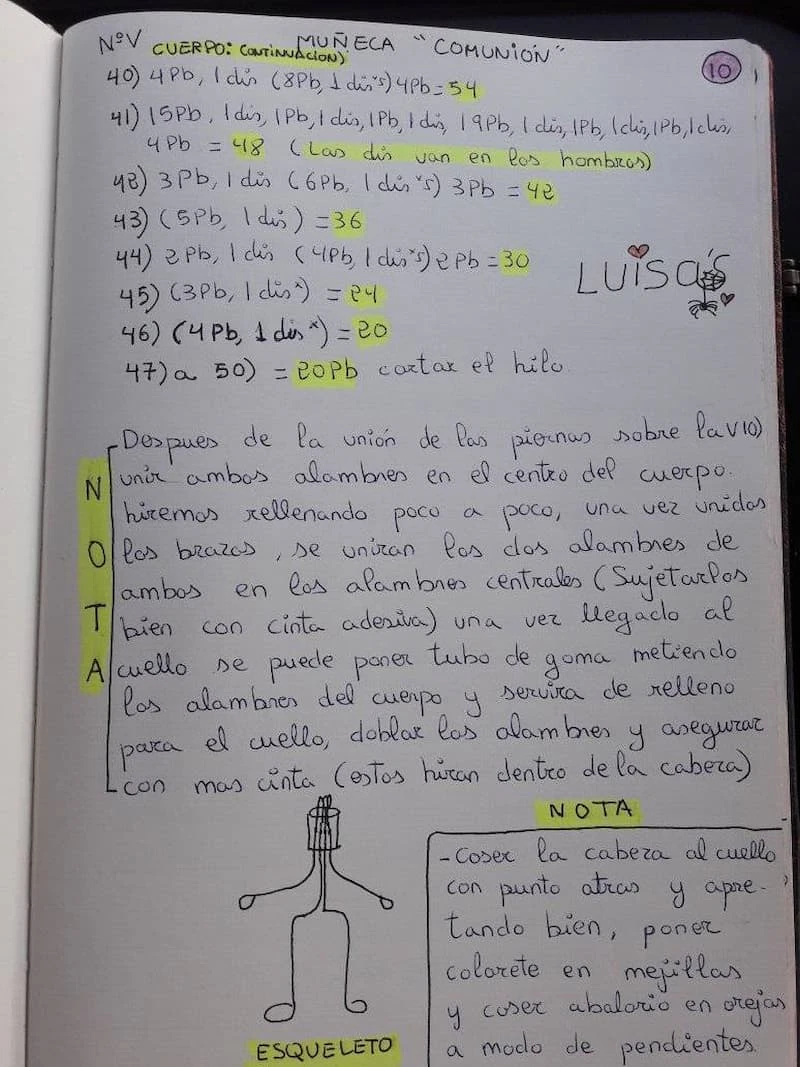 NºV
MUÑECA "COMUNIÓN"
10
CUERPO: CONTINUACION)
40) 4Pb, 1 dis (8Pb, 1 dis*s) 4Pb = 54
41) 15Pb, 1 dis, 1Pb, 1 dis, 1Pb, 1 dis, 19Pb, 1 dis, 1Pb, 1 dis, 1Pb, 1 dis,
4Pb = 48 (Las dis van en los hombros)
42) 3Pb, 1 dis (6Pb, 1 dis*s) 3Pb = 42
43) (5Pb, 1 dis) = 36
44) 2Pb, 1 dis (4Pb, 1 dis*s) 2Pb = 30
LUISA'S
45) (3Pb, 1 dis*) = 24
46) (4Pb, 1 dis*) = 20
47) a 50) = 20Pb cortar el hilo
NOTA
Despues de la unión de las piernas sobre la V10)
unir ambos alambres en el centro del cuerpo.
hiremos rellenando poco a poco, una vez unidos
los brazos, se uniran los dos alambres de
ambos en los alambres centrales (Sujetarlos
bien con cinta adesiva) una vez llegado al
cuello se puede poner tubo de goma metiendo
los alambres del cuerpo y servira de relleno
para el cuello, doblar los alambres y asegurar
con mas cinta (estos hiran dentro de la cabeza)
ESQUELETO
NOTA
- Coser la cabeza al cuello
con punto atras y apre-
tando bien, poner
colorete en mejillas
y coser abalorio en orejas
a modo de pendientes.